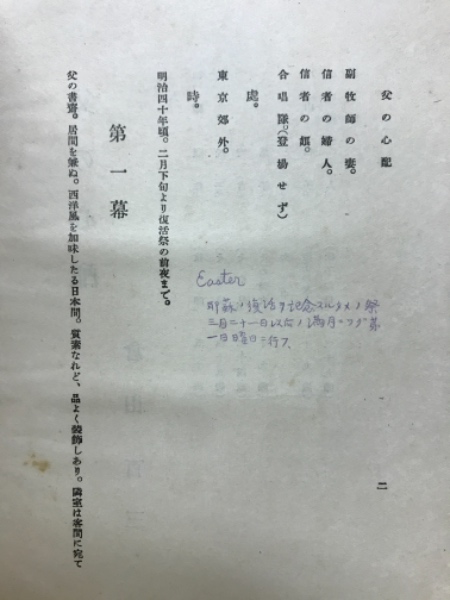 父の心配
副牧師の妻。
信者の婦人。
信者の娘。
合唱隊。(登場せず)
處。
東京郊外。
時。
明治四十年頃。二月下旬より復活祭の前夜まで。
第一幕
父の書齋。居間を兼ぬ。西洋風を加味したる日本間。質素なれど、品よく裝飾しあり。隣室は客間に宛て
Easter
耶蘇ノ復活ヲ記念スルタメノ祭
三月二十一日以后ノ満月ニツグ第
一日曜日ニ行フ、
二